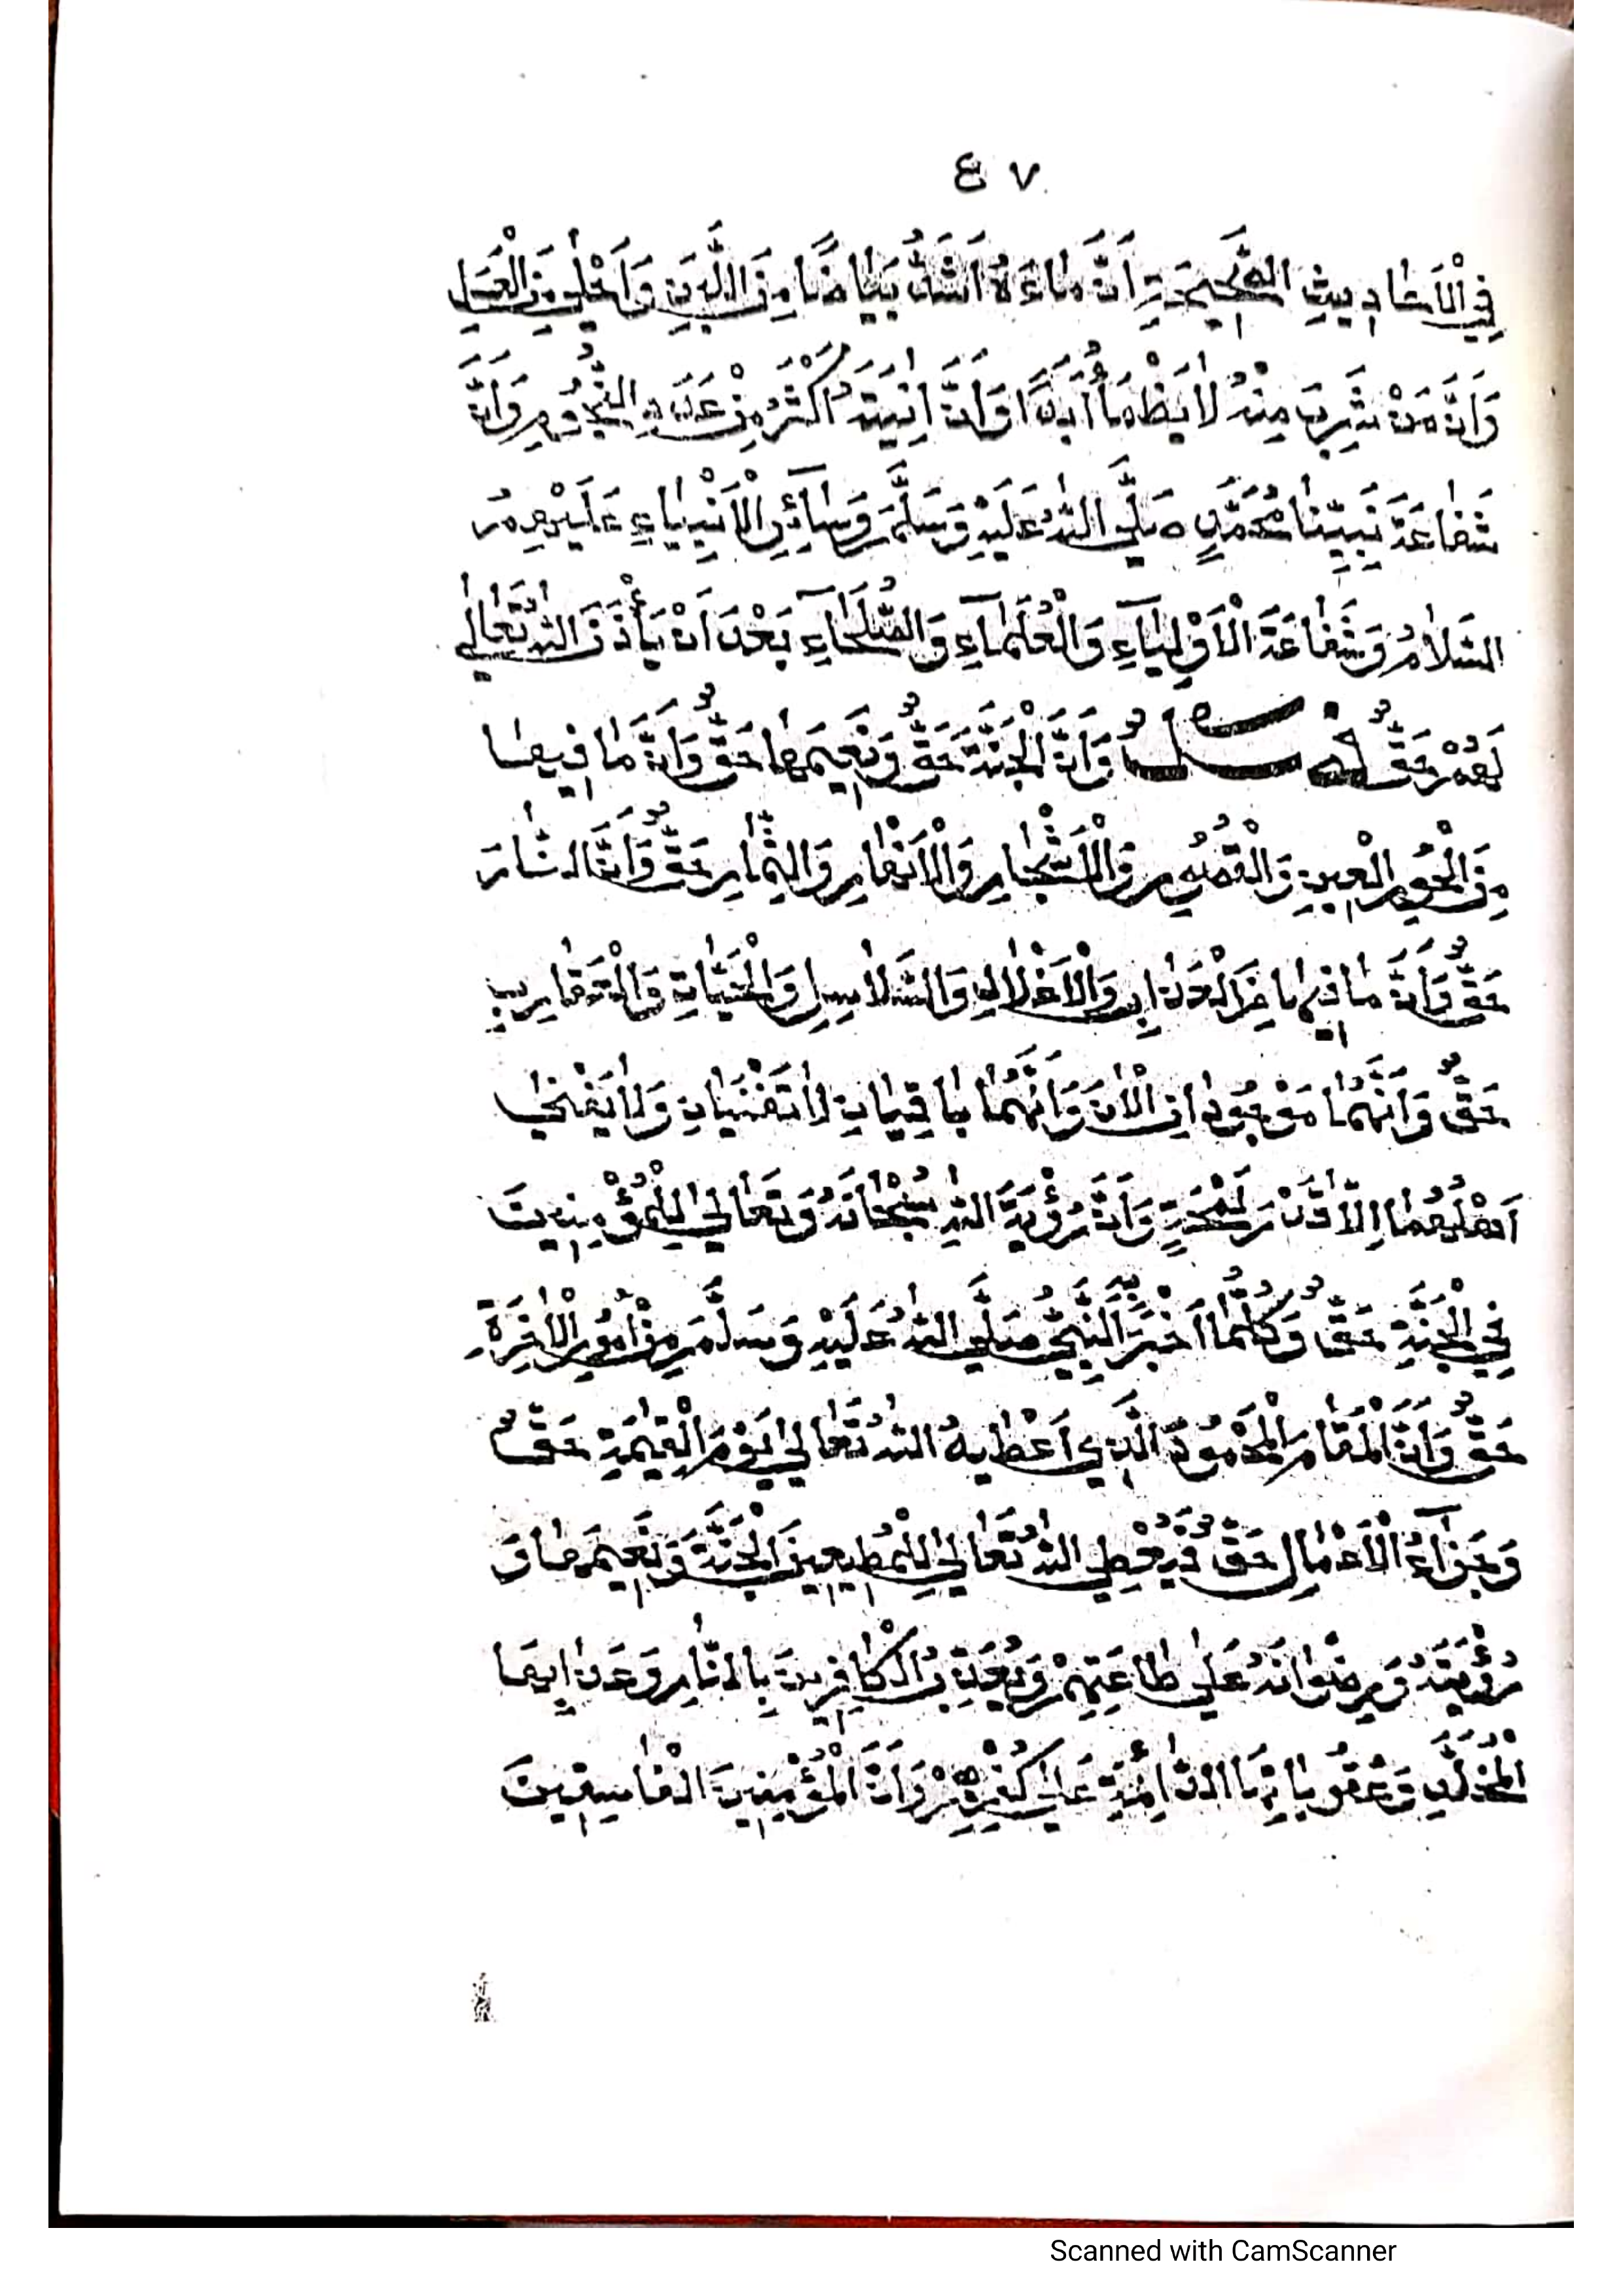 ٤٧
فِي الْاَحَادِيثِ الصَّحِيحَةِ اَنَّ مَاءَهُ اَشَدُّ بَيَاضًا مِنَ اللَّبَنِ وَاَحْلَى مِنَ الْعَسَلِ
وَاَنَّ مَنْ شَرِبَ مِنْهُ لَا يَظْمَأُ اَبَدًا وَاَنَّ اٰنِيَتَهُ اَكْثَرُ مِنْ عَدَدِ النُّجُومِ وَاَنَّ
شَفَاعَةَ نَبِيِّنَا مُحَمَّدٍ صَلَّى اللهُ عَلَيْهِ وَسَلَّمَ وَسَآئِرِ الْاَنْبِيَاءِ عَلَيْهِمُ
السَّلَامُ وَشَفَاعَةَ الْاَوْلِيَآءِ وَالْعُلَمَآءِ وَالصُّلَحَآءِ بَعْدَ اَنْ يَأْذَنَ اللهُ تَعَالٰى
لَهُمْ حَقٌّ فصل وَاَنَّ الْجَنَّةَ حَقٌّ وَنَعِيمَهَا حَقٌّ وَاَنَّ مَا فِيهَا
مِنَ الْحُورِ الْعِينِ وَالْقُصُورِ وَالْاَشْجَارِ وَالْاَنْهَارِ وَالثِّمَارِ حَقٌّ وَاَنَّ النَّارَ
حَقٌّ وَاَنَّ مَا فِيهَا مِنَ الْعَذَابِ وَالْاَغْلَالِ وَالسَّلَاسِلِ وَالْحَيَّاتِ وَالْعَقَارِبِ
حَقٌّ وَاَنَّهُمَا مَوْجُودَانِ الْاٰنَ وَاَنَّهُمَا بَاقِيَانِ لَا تَفْنَيَانِ وَلَا يَفْنٰى
اَهْلُهُمَا اِلَّا قَدْرَ لَمْحَةٍ وَاَنَّ رُؤْيَةَ اللهِ سُبْحَانَهُ وَتَعَالٰى لِلْمُؤْمِنِينَ
فِي الْجَنَّةِ حَقٌّ وَكُلُّمَا اَخْبَرَ بِهِ النَّبِيُّ صَلَّى اللهُ عَلَيْهِ وَسَلَّمَ مِنْ اُمُورِ الْاٰخِرَةِ
حَقٌّ وَاَنَّ الْمَقَامَ الْمَحْمُودَ الَّذِي اَعْطٰيهُ اللهُ تَعَالٰى يَوْمَ الْقِيٰمَةِ حَقٌّ
وَجَزَآءُ الْاَعْمَالِ حَقٌّ فَيُعْطِي اللهُ تَعَالٰى لِلْمُطِيعِينَ الْجَنَّةَ وَنَعِيمَهَا وَ
رُؤْيَتَهُ وَرِضْوَانَهُ عَلٰى طَاعَتِهِمْ وَيُعَذِّبُ الْكَافِرِينَ بِالنَّارِ وَعَذَابِهَا
الْمُخَلَّدِ وَعُقُوبَاتِهَا الدَّائِمَةِ عَلٰى كُفْرِهِمْ وَاَنَّ الْمُؤْمِنِينَ الْفَاسِقِينَ
Scanned with CamScanner